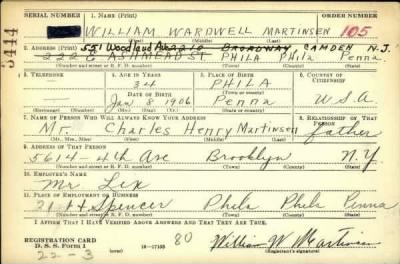 SERIAL NUMBER 1. NAME (Print) ORDER NUMBER
3444
WILLIAM WARDWELL MARTINSEN 105
(First) (Middle) (Last)
2. ADDRESS (Print) 551 Woodland Ave 2210 BROADWAY CAMDEN N.J.
222 E ASHMEAD ST PHILA Phila Penna
(Number and street or R. F. D. number) (Town) (County) (State)
3. TELEPHONE 4. AGE IN YEARS 5. PLACE OF BIRTH 6. COUNTRY OF CITIZENSHIP
34 PHILA
DATE OF BIRTH
Jan 8 1906 Penna U.S.A.
(Exchange) (Number) (Mo.) (Day) (Yr.) (State or country)
7. NAME OF PERSON WHO WILL ALWAYS KNOW YOUR ADDRESS 8. RELATIONSHIP OF THAT PERSON
Mr. Charles Henry Martinsen father
(Mr., Mrs., Miss) (First) (Middle) (Last)
9. ADDRESS OF THAT PERSON
5614-4th Ave Brooklyn N.Y
(Number and street or R. F. D. number) (Town) (County) (State)
10. EMPLOYER'S NAME
Mr Lex
11. PLACE OF EMPLOYMENT OR BUSINESS
21st + Spencer Phila Phila Penna
(Number and street or R. F. D. number) (Town) (County) (State)
I AFFIRM THAT I HAVE VERIFIED ABOVE ANSWERS AND THAT THEY ARE TRUE.
REGISTRATION CARD
D. S. S. FORM 1 80 William W. Martinsen
22-3 (Registrant's signature)